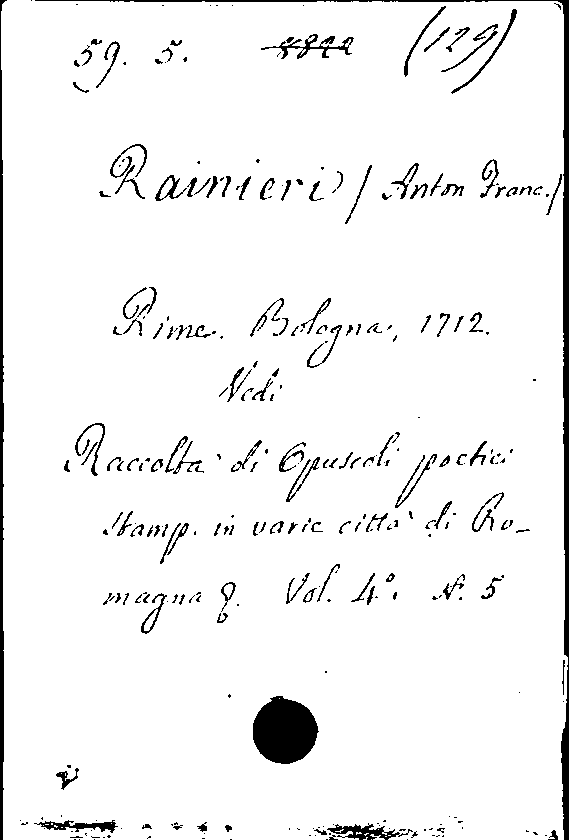 59. 5. (129)
Rainieri / Anton Franc./
Rime. Bologna, 1712.
Vedi
Raccolta di Opuscoli poetici
stamp. in varie città di Ro-
magna Vol. 4º. N. 5